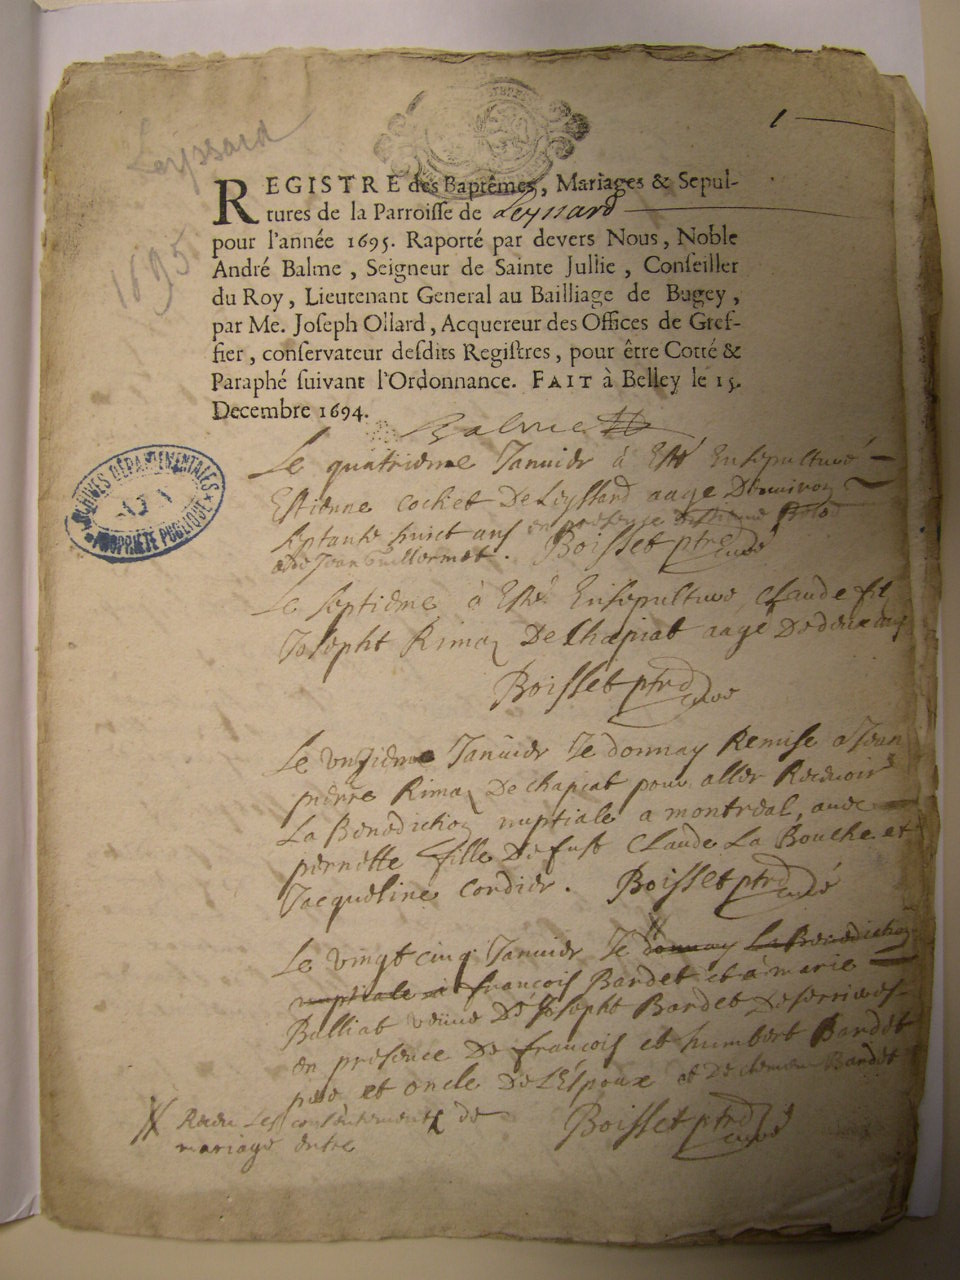 1
Leyssard
1695
REGISTRE des Baptêmes, Mariages & Sepul-
tures de la Parroisse de Leyssard
pour l'année 1695. Raporté par devers Nous, Noble
André Balme, Seigneur de Sainte Jullie, Conseiller
du Roy, Lieutenant General au Bailliage de Bugey,
par Me. Joseph Ollard, Acquereur des Offices de Gref-
fier, conservateur desdits Registres, pour être Cotté &
Paraphé suivant l'Ordonnance. FAIT à Belley le 15.
Decembre 1694.
Balme
ARCHIVES DÉPARTEMENTALES
AIN
PROPRIÉTÉ PUBLIQUE
Le quatrieme Januier à Esté Ensepulturé
Estienne cochet De Leyssard aage Denuiron
septante huict ans en presense
et de Jean Guillermet. Boisset ptre curé
Le septieme à Esté Ensepulturé Claude fil
Josepht Rimaz De Chapiat aagé De deux ans
Boisset ptre curé
Le vnzieme Januier Je donnay Remise a Jean
pierre Rimaz De chapiat pour aller Receuoir
La Benediction nuptiale a montreal, auec
pernette fille De fust Claude La Bouche et
Jacqueline Cordier. Boisset ptre curé
Le vingt cinq Januier Je donnay La Benediction
nuptiale à francois Bardet et à marie
Balliat veüue De Josepht Bardet De serrieres
en presence De francois et humbert Bardet
pere et oncle De L'Espoux et De clemen Bardet
Boisset ptre curé
Receu Les consentements de
mariage entre